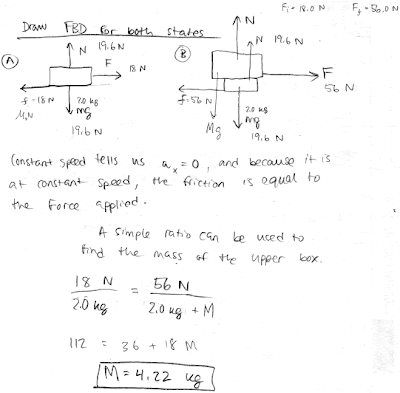 Fi = 18.0 N Ff = 56.0 N
Draw FBD for both states
A
N 19.6 N
F 18 N
f = 18 N
μkN
2.0 kg
mg
19.6 N
B
N
N 19.6 N
F
56 N
f = 56 N
Mg
2.0 kg
mg
19.6 N
Constant speed tells us ax = 0, and because it is
at constant speed, the friction is equal to
the Force applied.
A simple ratio can be used to
find the mass of the upper box.
18 N / 2.0 kg = 56 N / 2.0 kg + M
112 = 36 + 18 M
M = 4.22 kg